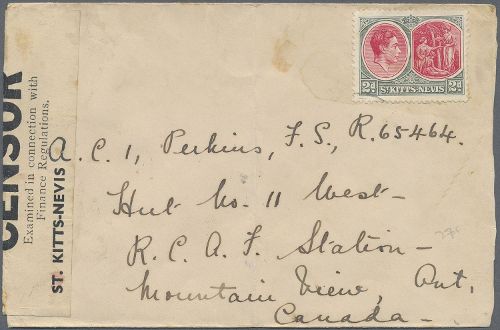 CENSOR
Examined in connection with
Finance Regulations.
ST. KITTS-NEVIS
2d ST KITTS-NEVIS 2d
A. C. 1, Perkins, F. S., R. 65464.
Hut No. 11 West-
R. C. A. F. Station-
Mountain View, Ont.
Canada-